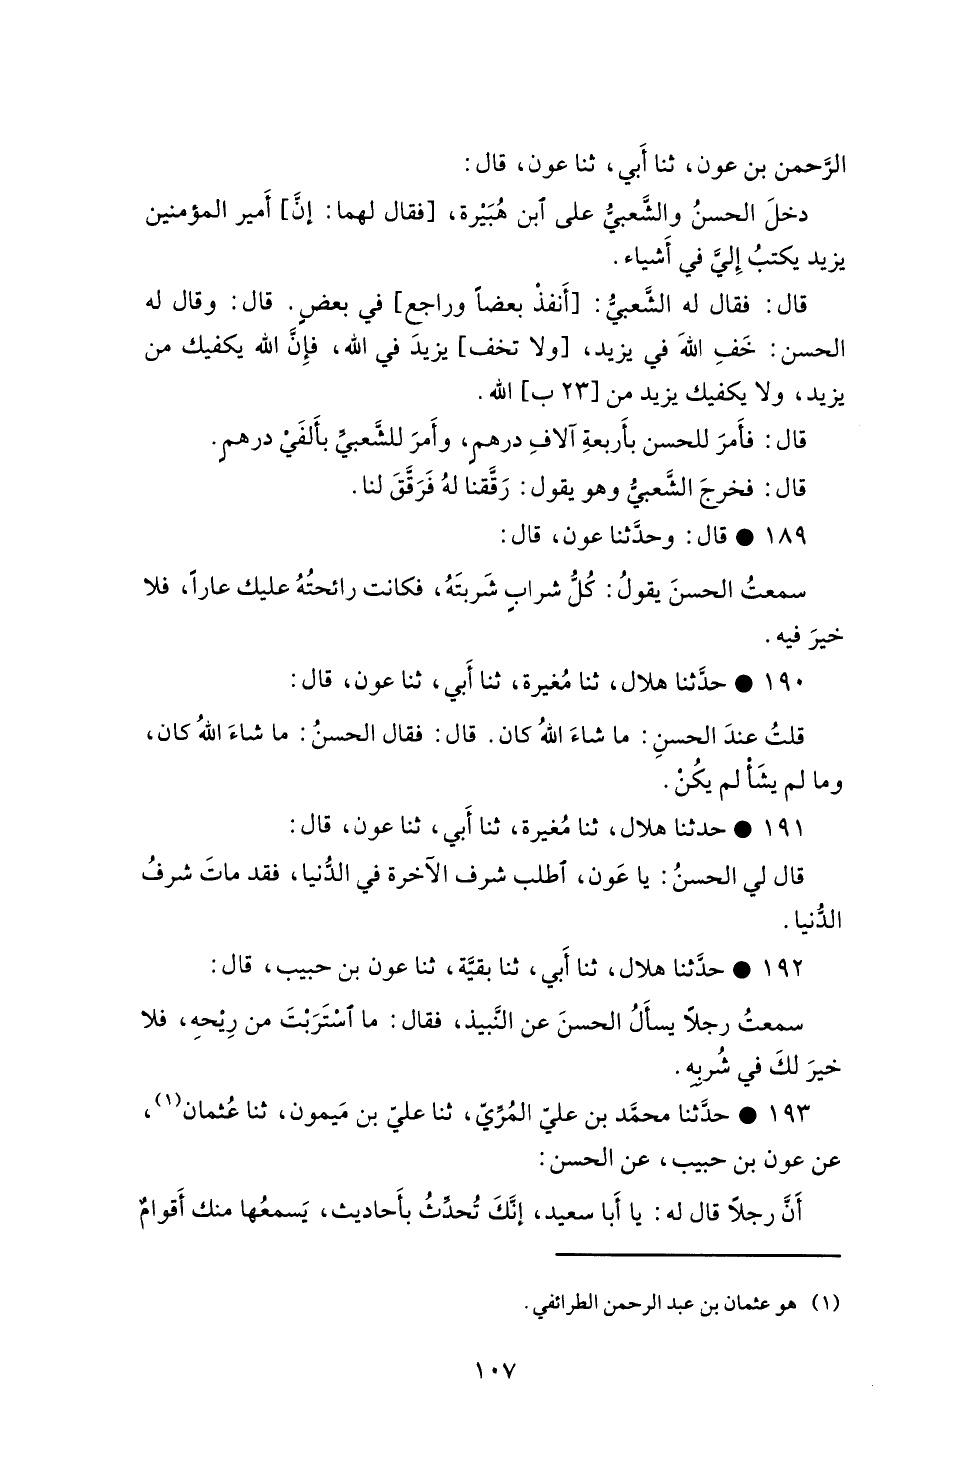 الرَّحمن بن عون، ثنا أَبي، ثنا عون، قال:
دخلَ الحسنُ والشَّعبيُّ على ٱبن هُبَيْرة، [فقال لهما: إنَّ] أَمير المؤمنين
يزيد يكتبُ إِليَّ في أَشياء.
قال: فقال له الشَّعبيُّ: [أَنفذْ بعضاً وراجع] في بعضٍ. قال: وقال له
الحسن: خَفِ اللهَ في يزيد، [ولا تخف] يزيدَ في الله، فإِنَّ الله يكفيك من
يزيد، ولا يكفيك يزيد من [٢٣ ب] الله.
قال: فأَمرَ للحسن بأَربعةِ آلافِ درهمٍ، وأَمرَ للشَّعبيِّ بأَلفَيْ درهمٍ.
قال: فخرجَ الشَّعبيُّ وهو يقول: رَقَّقنا لهُ فَرَقَّقَ لنا.
١٨٩ ● قال: وحدَّثنا عون، قال:
سمعتُ الحسنَ يقولُ: كُلُّ شرابٍ شَربتَهُ، فكانت رائحتُهُ عليك عاراً، فلا
خيرَ فيه.
١٩٠ ● حدَّثنا هلال، ثنا مُغيرة، ثنا أَبي، ثنا عون، قال:
قلتُ عندَ الحسنِ: ما شاءَ اللهُ كان. قال: فقال الحسنُ: ما شاءَ اللهُ كان،
وما لم يشَأْ لم يكُنْ.
١٩١ ● حدثنا هلال، ثنا مُغيرة، ثنا أَبي، ثنا عون، قال:
قال لي الحسنُ: يا عَون، ٱطلب شرف الآخرة في الدُّنيا، فقد ماتَ شرفُ
الدُّنيا.
١٩٢ ● حدَّثنا هلال، ثنا أَبي، ثنا بقيَّة، ثنا عون بن حبيب، قال:
سمعتُ رجلاً يسأَلُ الحسنَ عن النَّبيذ، فقال: ما ٱسْتَرَبْتَ من رِيْحهِ، فلا
خيرَ لكَ في شُربِهِ.
١٩٣ ● حدَّثنا محمَّد بن عليّ المُرِّيّ، ثنا عليّ بن مَيمون، ثنا عُثمان(١)،
عن عون بن حبيب، عن الحسن:
أَنَّ رجلاً قال له: يا أَبا سعيد، إنَّكَ تُحدِّثُ بأَحاديث، يَسمعُها منك أَقوامٌ
(١) هو عثمان بن عبد الرحمن الطرائفي.
١٠٧